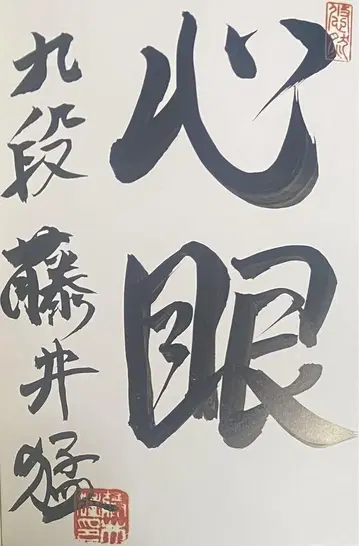 心眼
九段 藤井猛